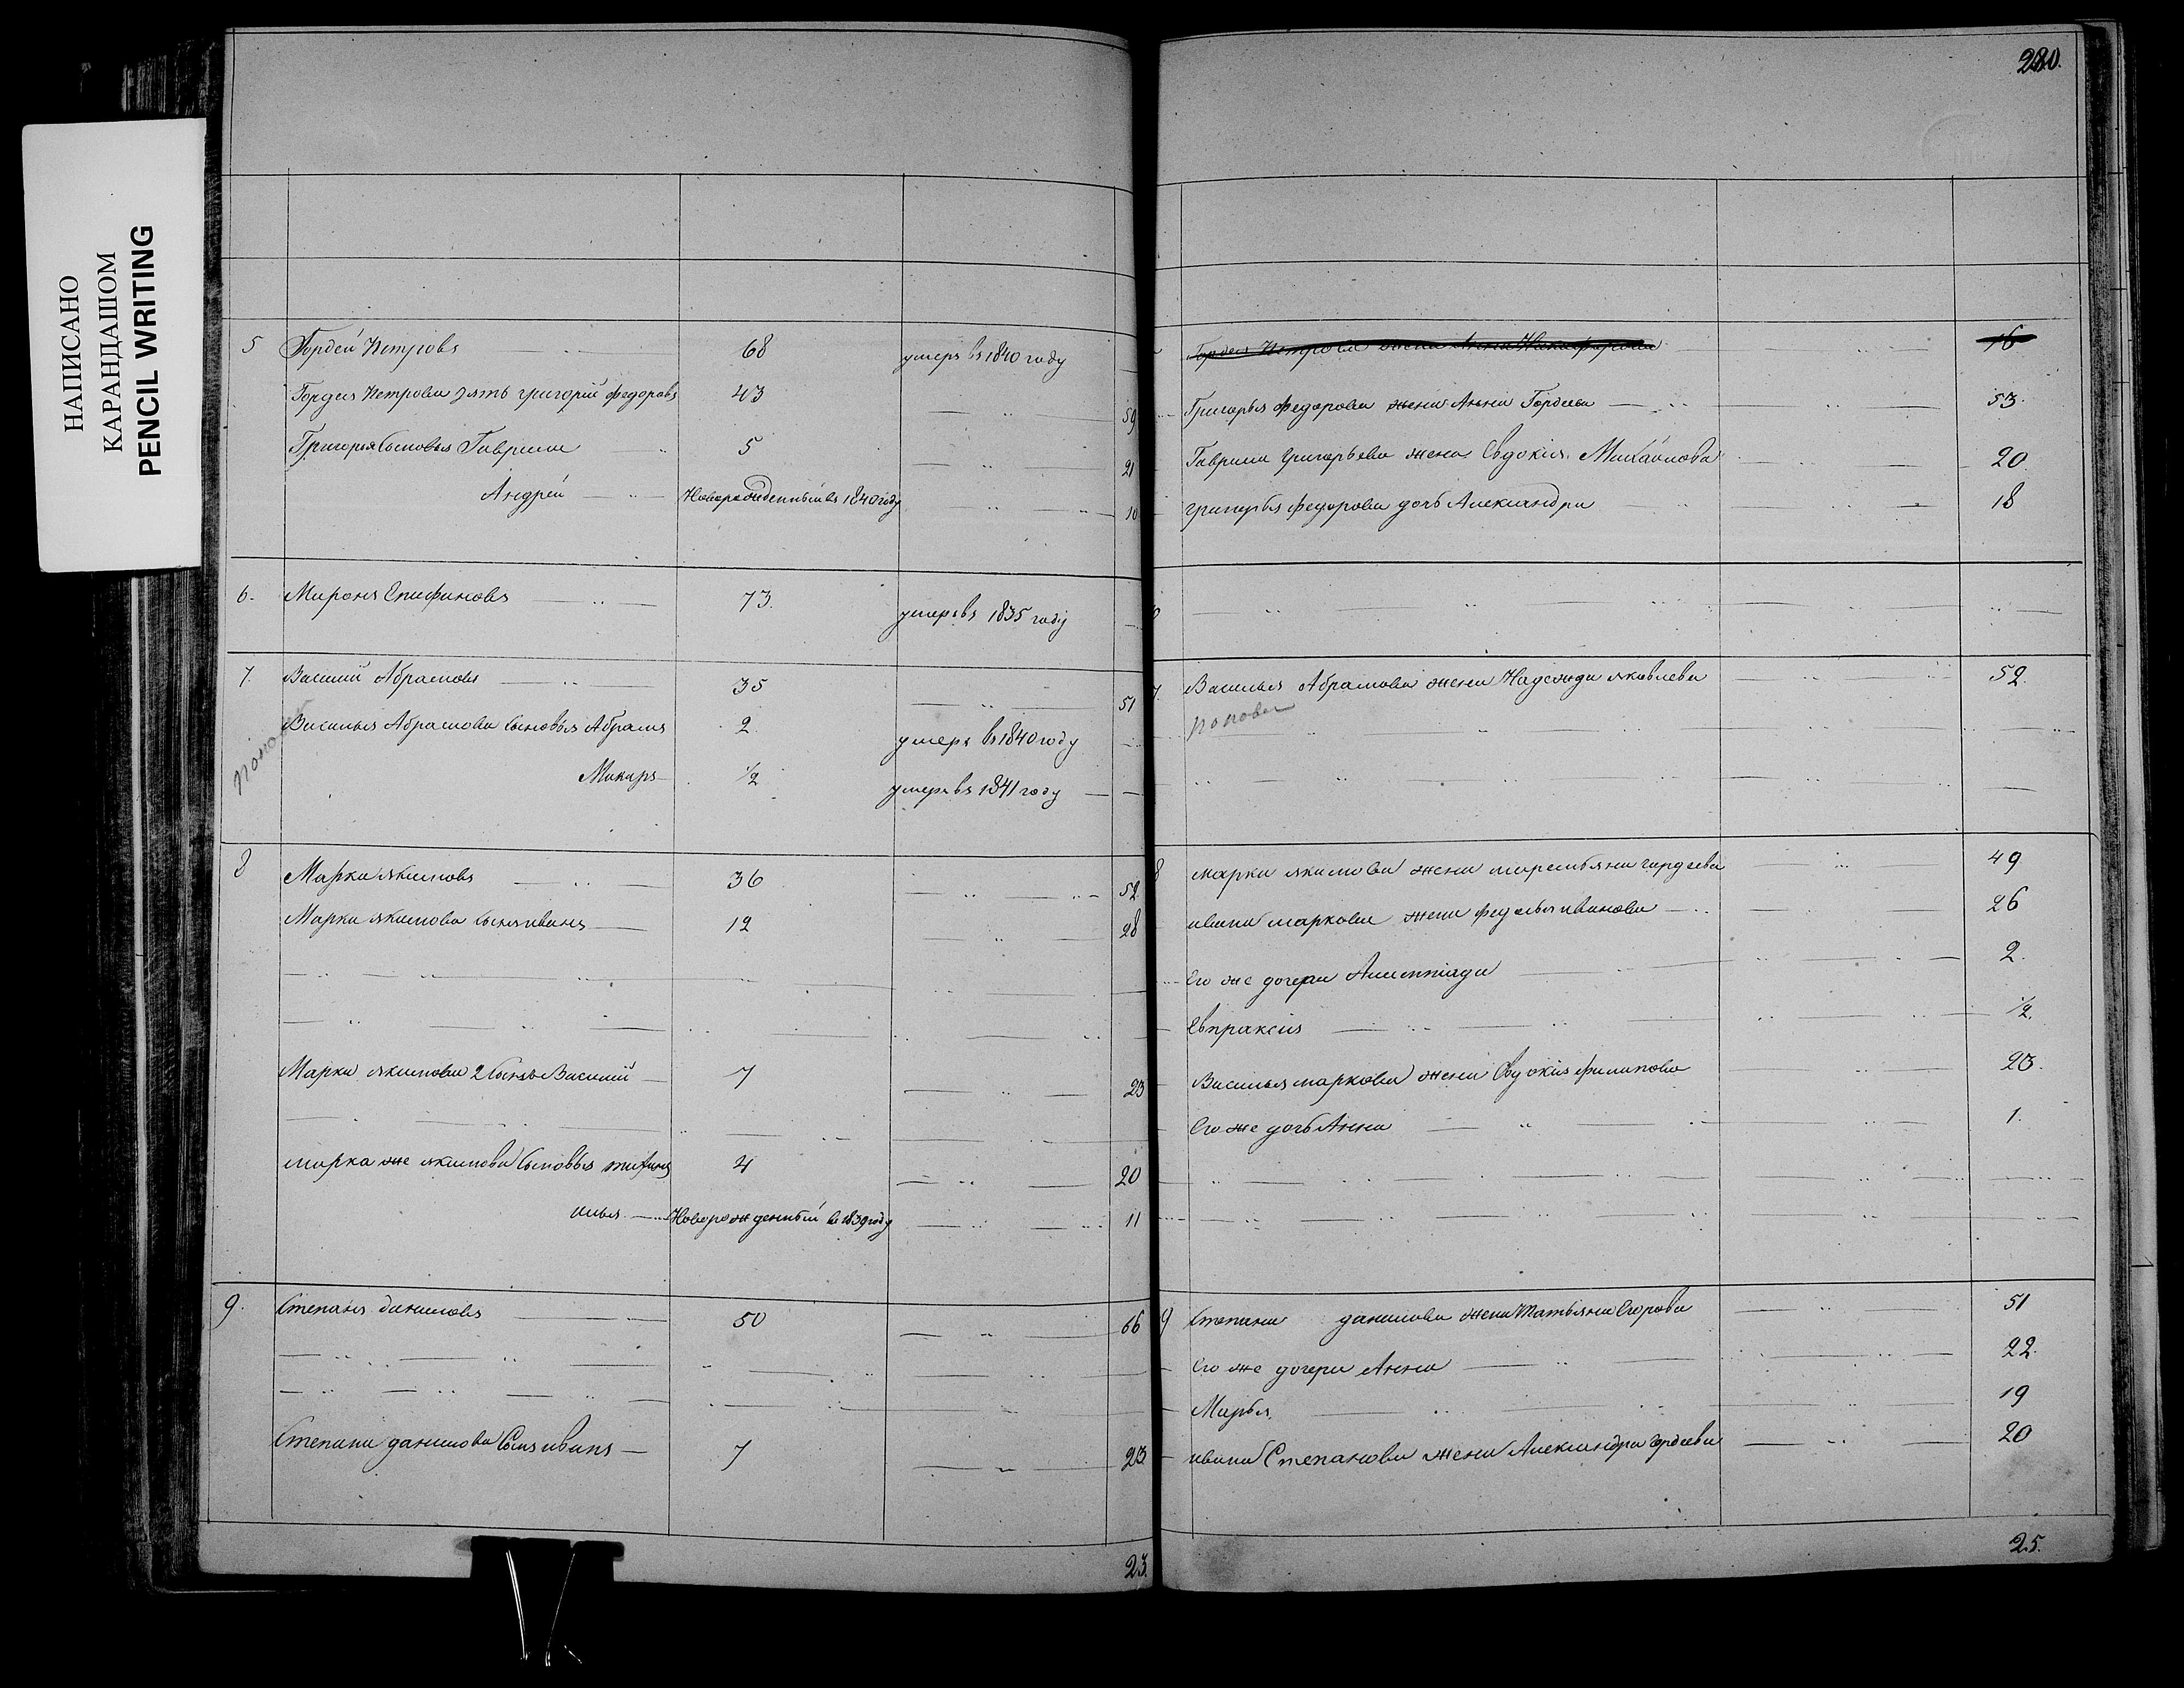 НАПИСАНО
КАРАНДАШОМ
PENCIL WRITING
5 Гордей Петровъ 68 умеръ въ 1840 году
Гордея Петрова зять григорий федоровъ 43 59
Григорья сыновья Гаврила 5 21
Андрей Новорожденный въ 1840 году 10
6. Миронъ Епифановъ 73. умеръ въ 1835 году
7. Василий Абрамовъ 35 51
Василья Абрамова сыновья Абрамъ 2 умеръ въ 1840 году
Макаръ 1/2 умеръ въ 1841 году
8 Марка якимовъ 36 52
Марки якимова сынъ иванъ 12 28
Марки якимова 2 сынъ Василий 7 23
марка же якимова сыновья 4 20
илья Новорожденный въ 1839 году 11
9. Степанъ даниловъ 50 66
Степана данилова сынъ иванъ 7 23
23.
280.
Гордея Петрова жена Анна Никифорова 16
Григорья Федорова жена Анна Гордеева 53.
Гаврила григорьева жена Евдокия Михайлова 20
григорья федорова дочь Александра 18
7. Василья Абрамова жена Надежда яковлева 52.
Попова
8 марки якимова жена маремьяна гордеева 49
ивана маркова жена федосья иванова 26
Его же дочери 2.
Евпраксия 1/2.
Василья маркова жена Евдокия филипова 23.
Его же дочь Анна 1.
9 Степана данилова жена Татьяна Егорова 51
Его же дочери Анна 22.
Марья 19
ивана Степанова жена Александра гордеева 20
25.